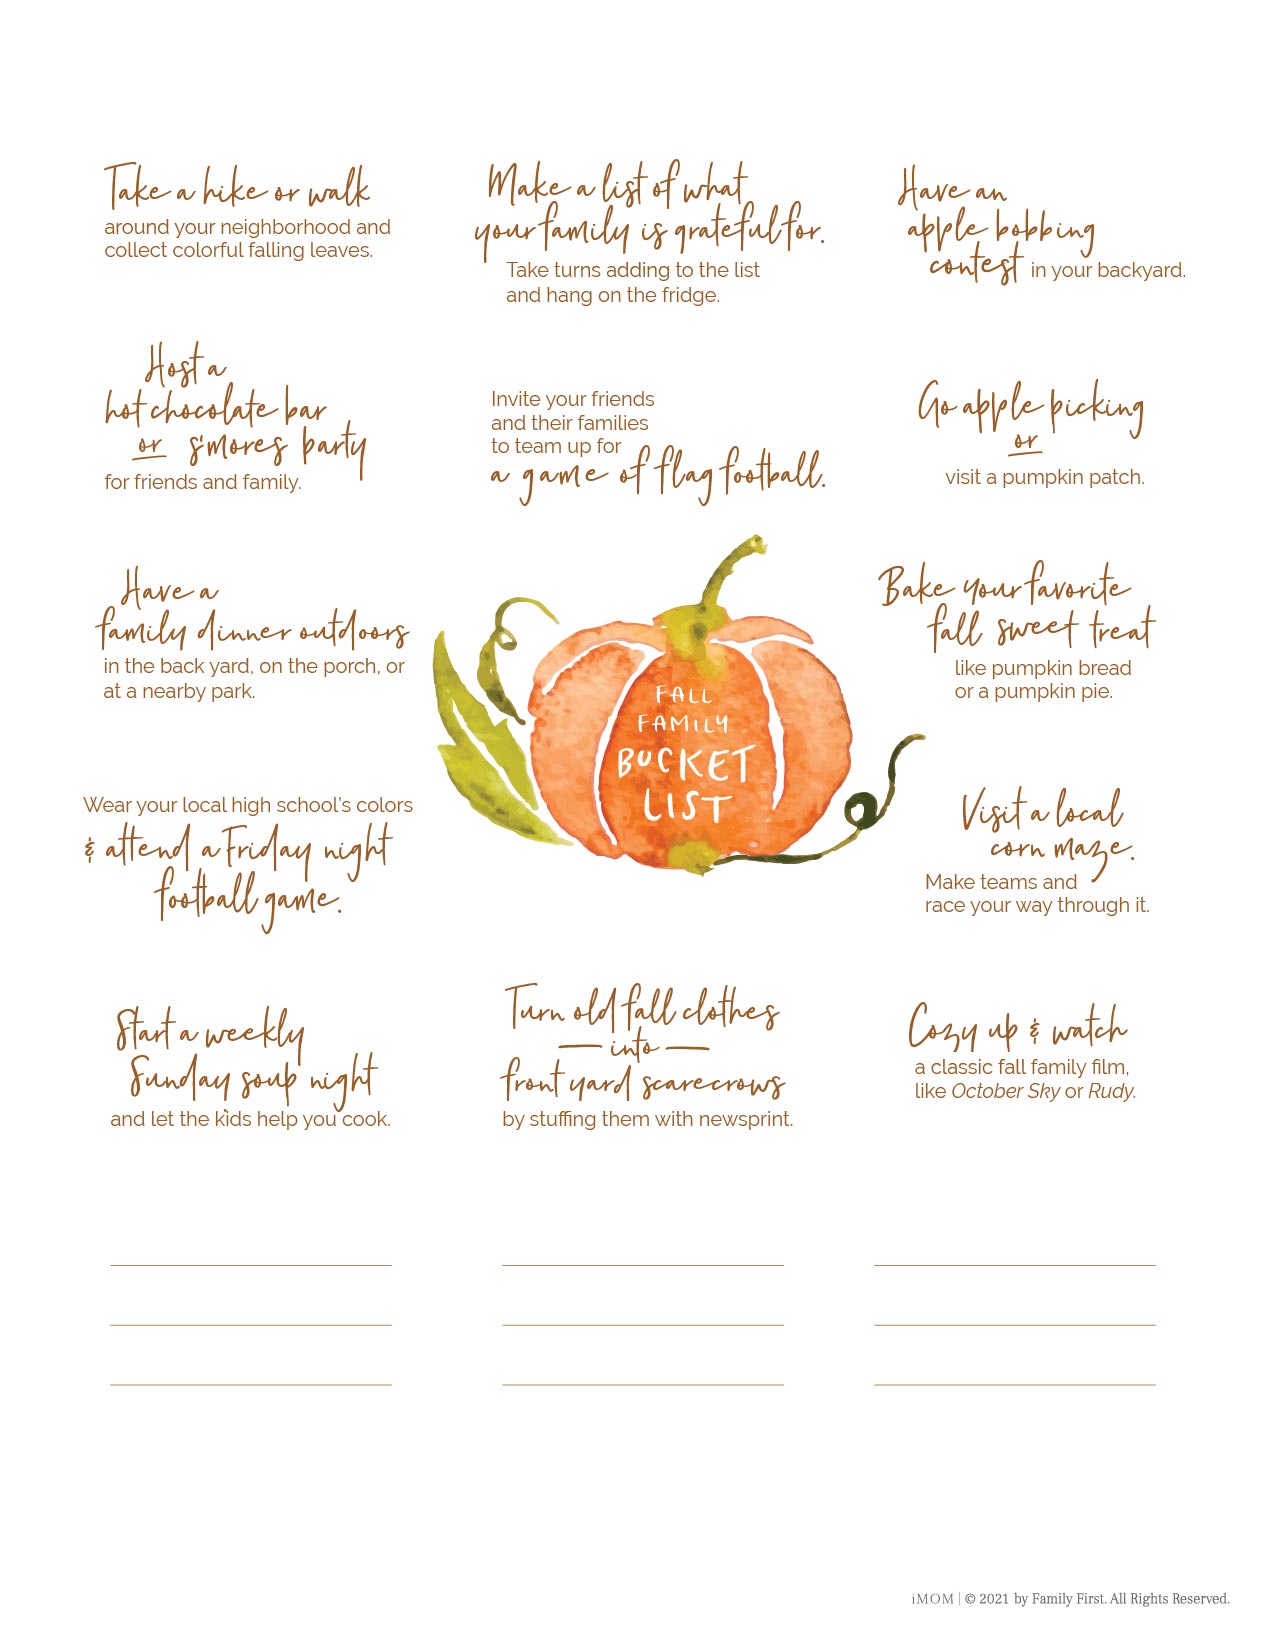 Take a hike or walk
around your neighborhood and
collect colorful falling leaves.
Make a list of what
your family is grateful for.
Take turns adding to the list
and hang on the fridge.
Have an
apple bobbing
contest in your backyard.
Host a
hot chocolate bar
or s'mores party
for friends and family.
Invite your friends
and their families
to team up for
a game of flag football.
Go apple picking
or
visit a pumpkin patch.
Have a
family dinner outdoors
in the back yard, on the porch, or
at a nearby park.
FALL
FAMILY
BUCKET
LIST
Bake your favorite
fall sweet treat
like pumpkin bread
or a pumpkin pie.
Wear your local high school's colors
& attend a Friday night
football game.
Visit a local
corn maze.
Make teams and
race your way through it.
Start a weekly
Sunday soup night
and let the kids help you cook.
Turn old fall clothes
— into —
front yard scarecrows
by stuffing them with newsprint.
Cozy up & watch
a classic fall family film,
like October Sky or Rudy.
iMOM | © 2021 by Family First. All Rights Reserved.